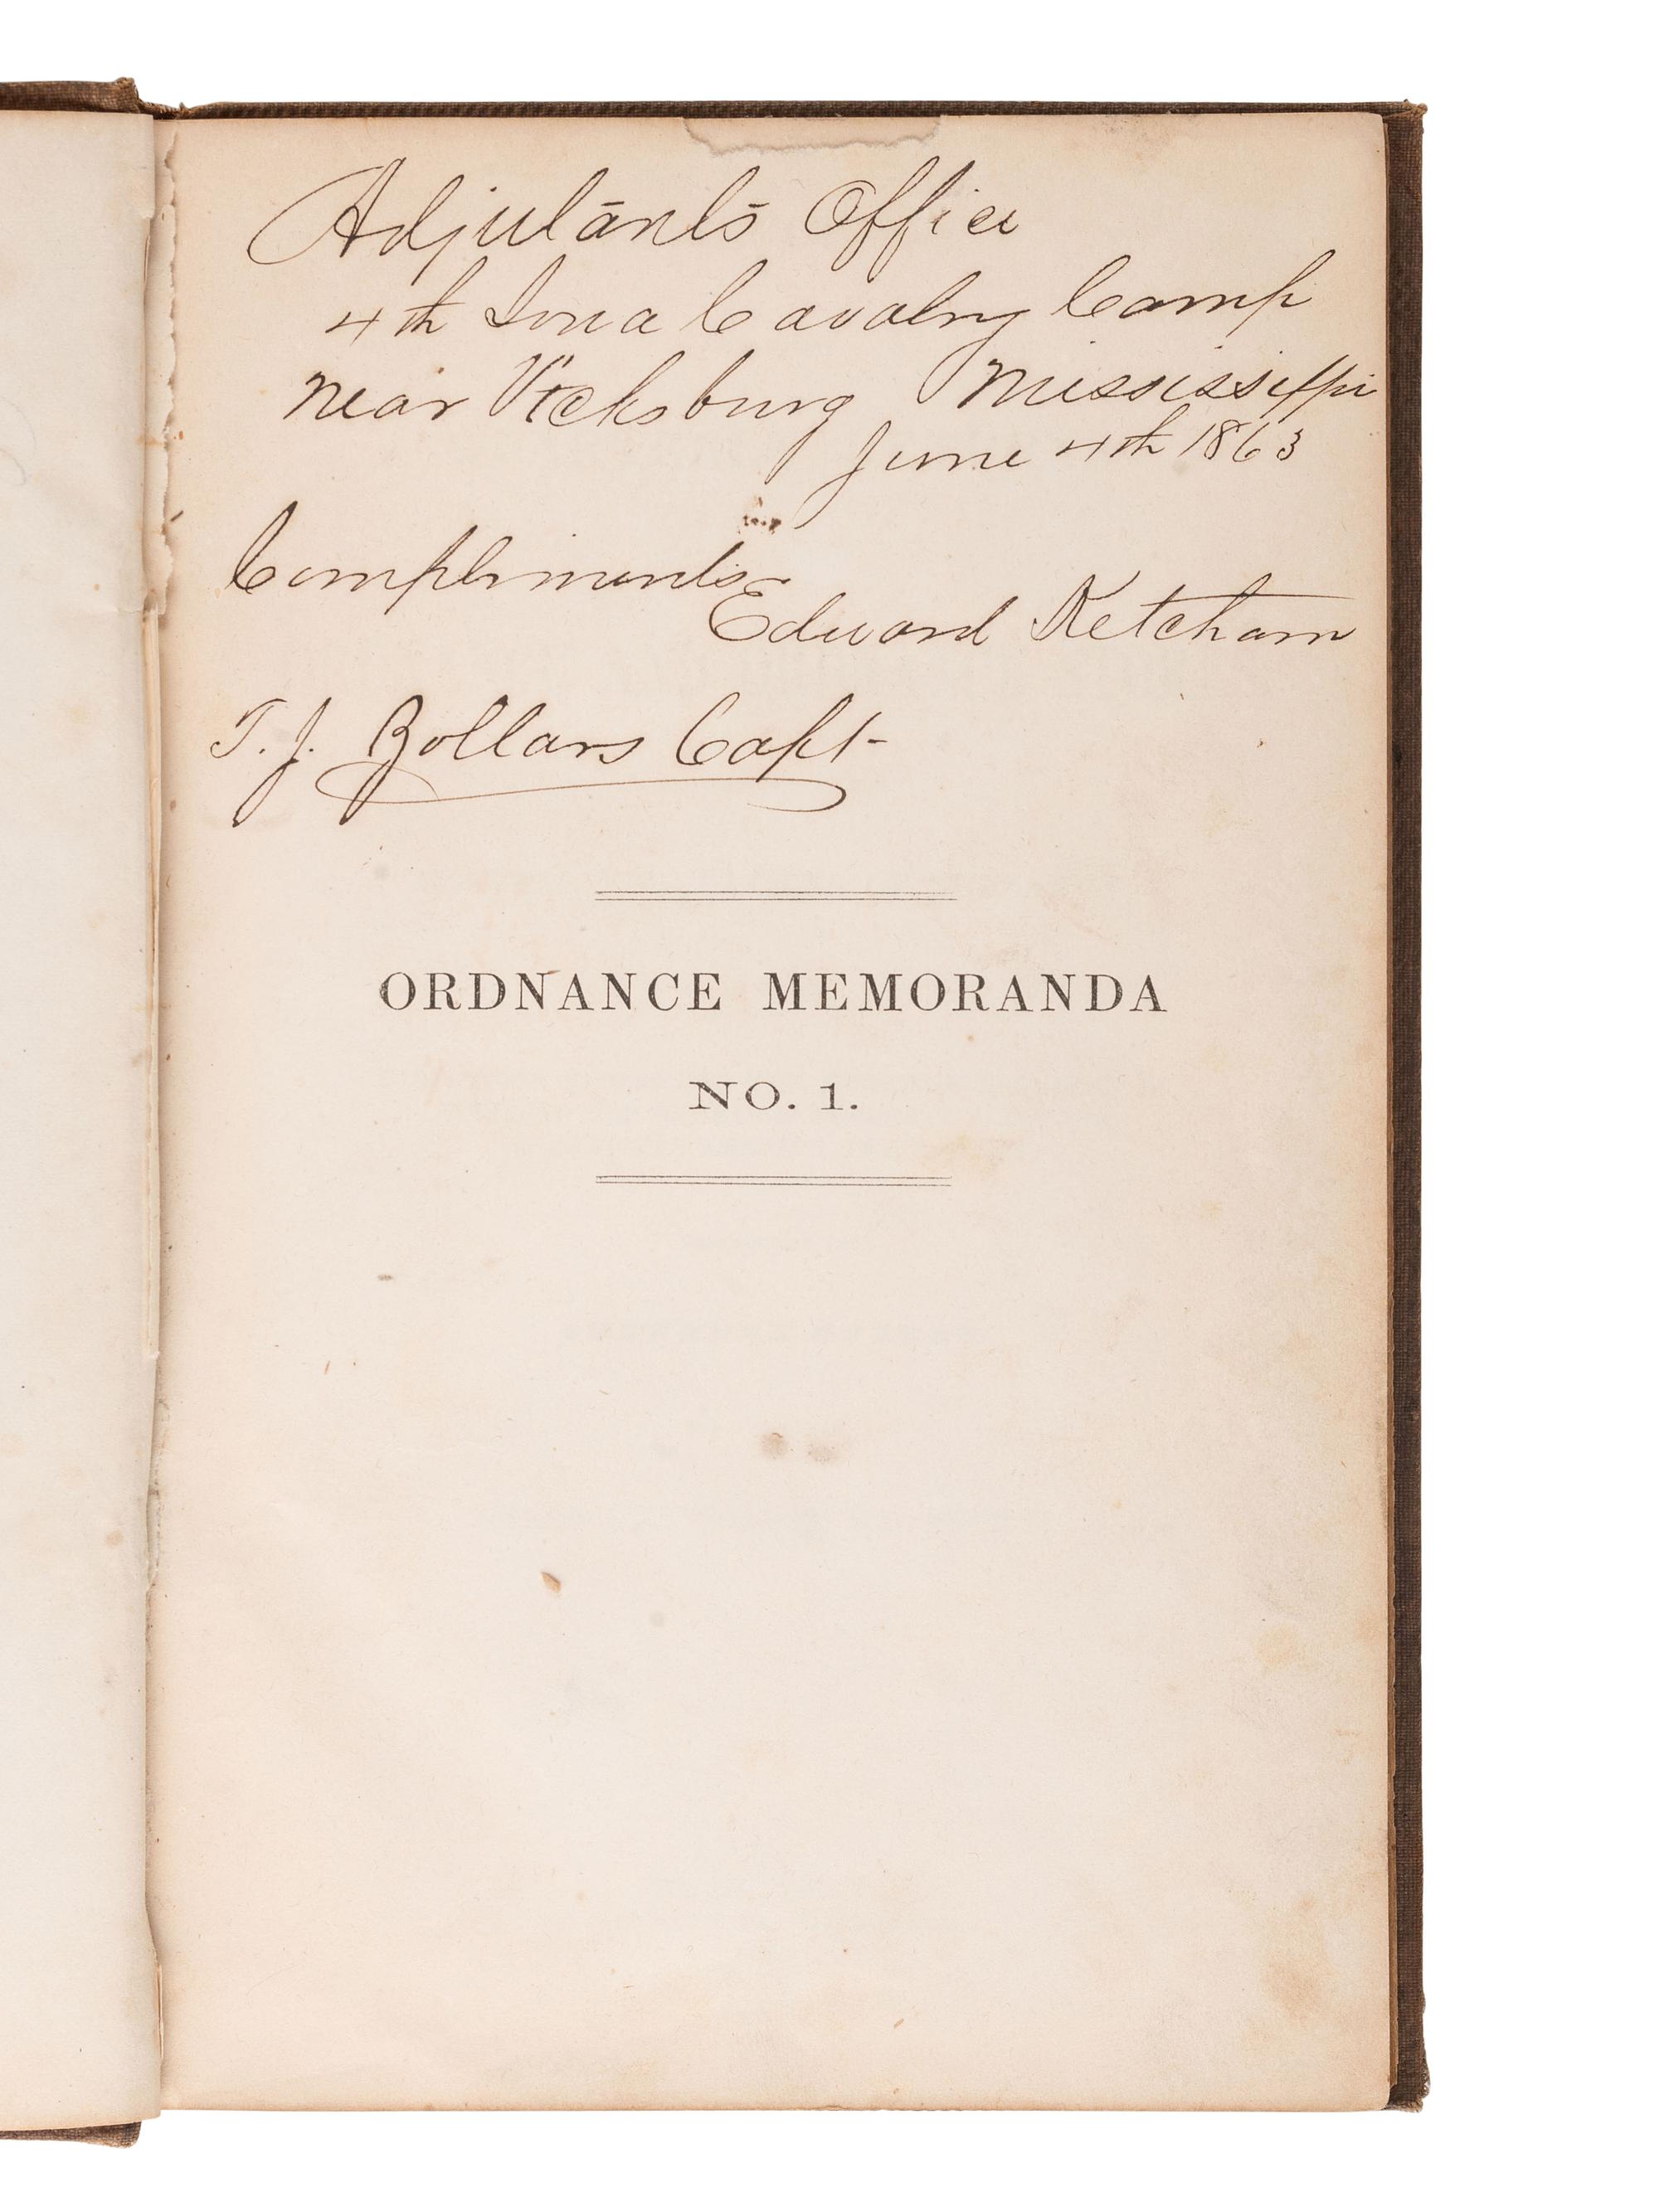 Adjutant's Office
4th Iowa Cavalry Camp
near Vicksburg Mississippi
June 4th 1863
Compliments
Edward Ketcham
T. J. Zollars Capt
ORDNANCE MEMORANDA
NO. 1.